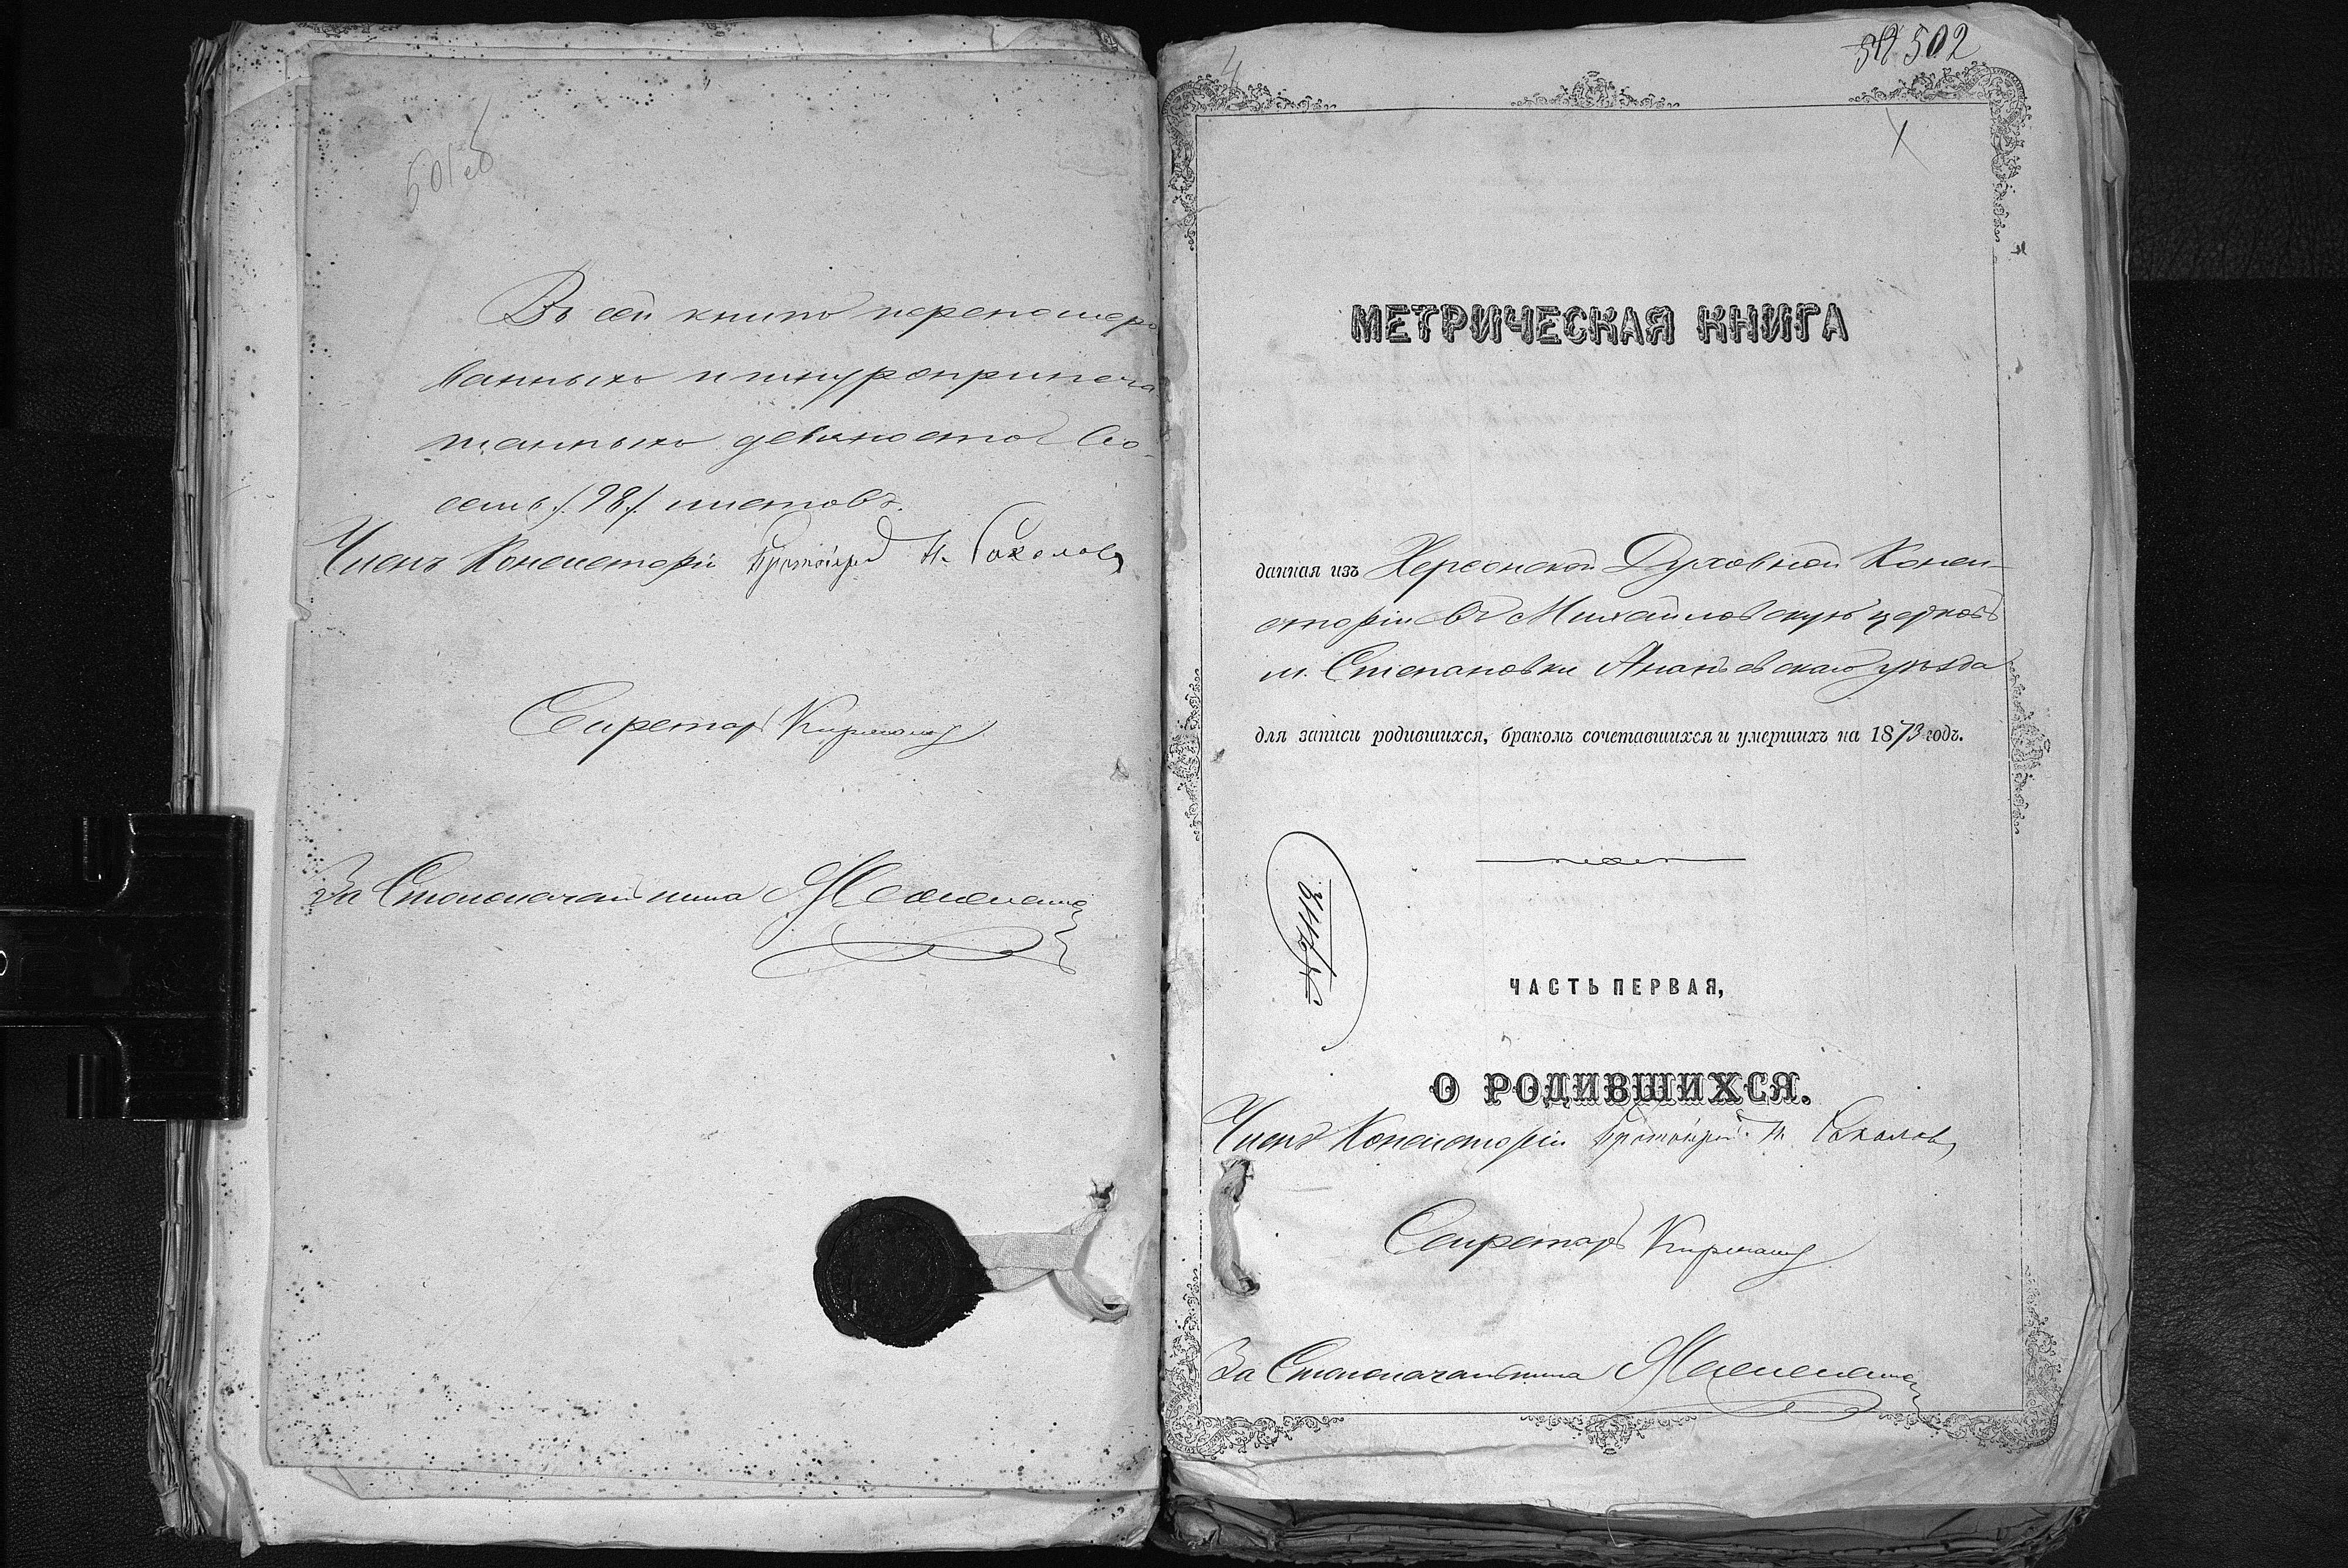 501об
Въ сей книгѣ перенумеро
ванныхъ и шнуроприпеча
танныхъ девяносто во-
семь /98/ листовъ.
Членъ Консисторіи Протоіерей Н. Соколовъ
Секретарь
За Столоначальника
4
502
1
МЕТРИЧЕСКАЯ КНИГА
данная изъ Херсонской Духовной Конси-
сторіи въ Михайловскую церковь
м. Степановки Ананьевскаго уѣзда
для записи родившихся, бракомъ сочетавшихся и умершихъ на 1873 годъ.
№7112
ЧАСТЬ ПЕРВАЯ,
О РОДИВШИХСЯ.
Членъ Консисторіи Протоіерей Н. Соколовъ
Секретарь
За Столоначальника